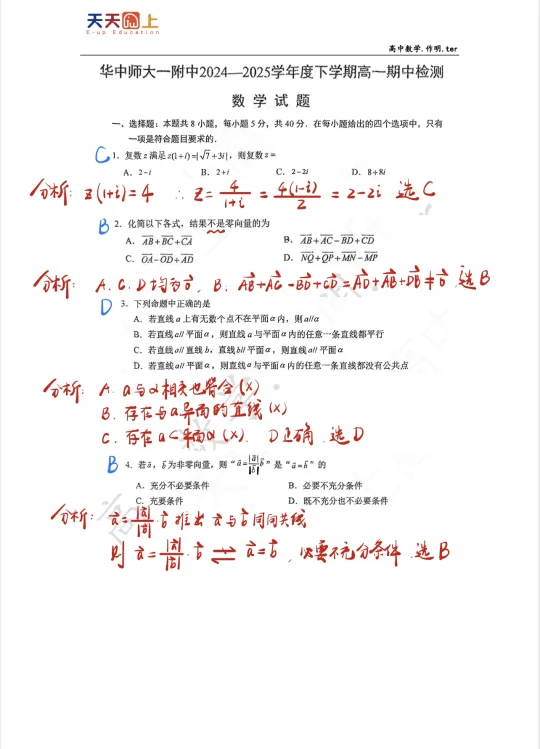 天天向上
E-up Education
高中数学.作明.ter
华中师大一附中2024—2025学年度下学期高一期中检测
数学试题
一、选择题：本题共 8 小题，每小题 5 分，共 40 分．在每小题给出的四个选项中，只有
一项是符合题目要求的．
C 1．复数 z 满足 z(1+i)=|√7+3i|，则复数 z =
A．2-i B．2+i C．2-2i D．8+8i
分析：z(1+i)=4 ∴ z=4/(1+i)=4(1-i)/2=2-2i 选C
B 2．化简以下各式，结果不是零向量的为
A．AB+BC+CA B．AB+AC-BD+CD
C．OA-OD+AD D．NQ+QP+MN-MP
分析：A.C.D均为0，B．AB+AC-BD+CD=AD+AB+DB≠0 选B
D 3．下列命题中正确的是
A．若直线 a 上有无数个点不在平面 α 内，则 a//α
B．若直线 a// 平面 α，则直线 a 与平面 α 内的任意一条直线都平行
C．若直线 a// 直线 b，直线 b// 平面 α，则直线 a// 平面 α
D．若直线 a// 平面 α，则直线 a 与平面 α 内的任意一条直线都没有公共点
分析：A. a与α相交也符合(×)
B. 存在与a异面的直线(×)
C. 存在a⊂平面α(×). D正确 选D
B 4．若 a，b 为非零向量，则“a=|a|/|b| b”是“a=b”的
A．充分不必要条件 B．必要不充分条件
C．充要条件 D．既不充分也不必要条件
分析：a=|a|/|b|·b 推出 a与b同向共线
则 a=|a|/|b|·b ⇌ a=b，必要不充分条件 选B